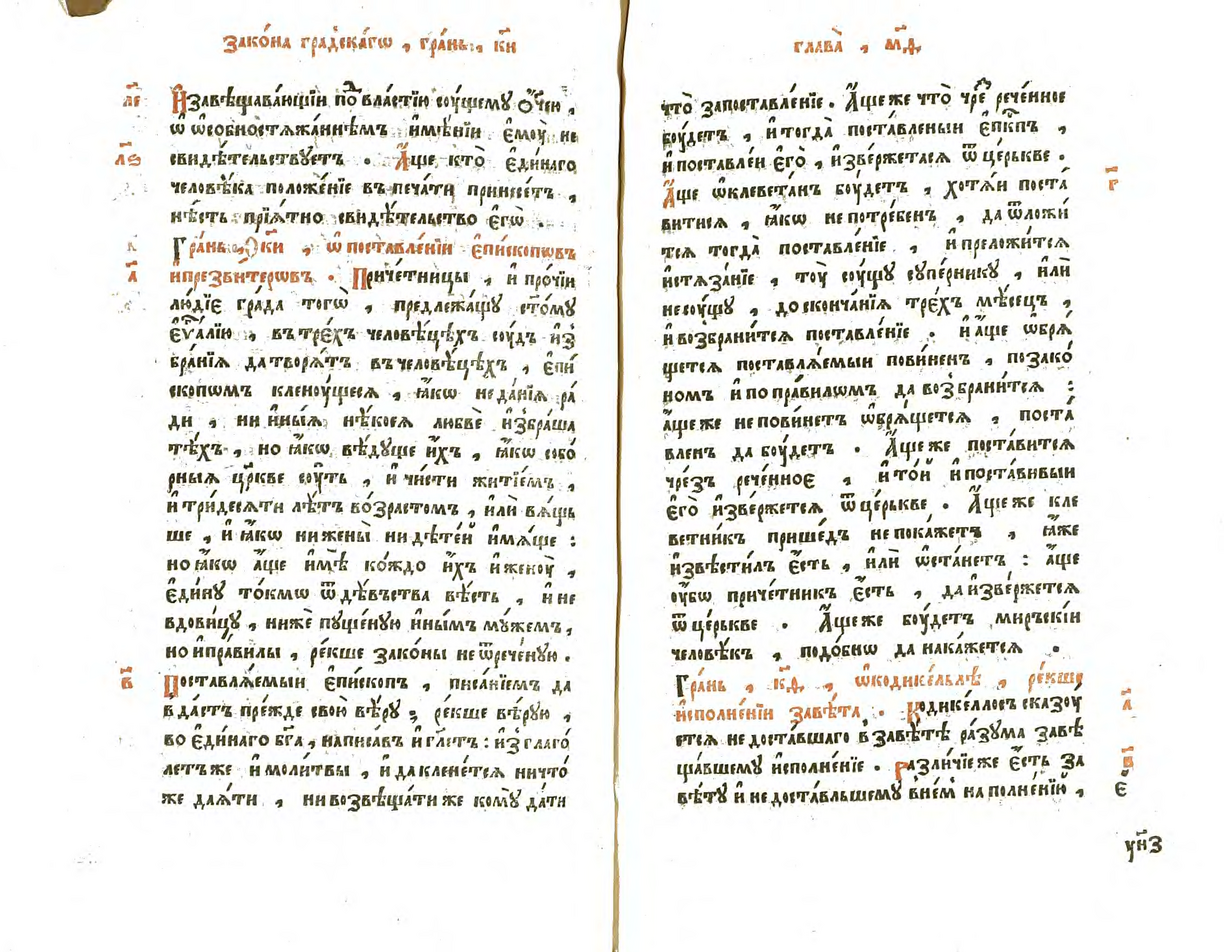 Зако́на градскагѡ , гра́нь , к҃и
л҃е
И҆завѣщава́ющїи по̾ вла́стїю сꙋ́щемꙋ ѻ҆́ч҃ею ,
ѡ҆ ѡ҆со́бностѧжа́ннѣмъ и҆мѣ́нїи є҆мꙋ̀ не
л҃ѕ
свидѣ́тельствꙋетъ . А҆́ще кто̀ є҆ди́наго
человѣ́ка положе́нїе въ печа́ти принесе́тъ ,
нѣ́сть прїѧ́тно свидѣ́тельство є҆гѡ̀ .
Гра́нь , к҃и , ѡ҆ поставле́нїи є҆пи́скоповъ
а҃
и҆презви́терѡвъ . Приче́тницы , и҆ про́чїи
лю́дїе гра́да тогѡ̀ , предлежа́щꙋ ст҃о́мꙋ
є҆ѵ҃а́лїю , въ тре́хъ человѣ́цѣхъ сꙋ́дъ и҆з̾
бра́нїѧ да творѧ́тъ въ человѣ́цѣхъ , є҆пи́
скопѡмъ кленꙋ́щесѧ , ꙗ҆́кѡ не да́нїѧ ра́
ди , ни и҆ны́ѧ нѣ́коеѧ любвѐ и҆збра́ша
тѣ́хъ , но ꙗ҆́кѡ вѣ́дꙋще и҆́хъ , ꙗ҆́кѡ собо́
рныѧ цр҃кве сꙋ́ть , и҆ чи́сти житїе́мъ ,
и҆ три́десѧти лѣ́тъ во́зрастомъ , и҆лѝ вѧ́щь
ше , и҆ ꙗ҆́кѡ ни жены̀ ни дѣте́й и҆мꙋ́ще :
но ꙗ҆́кѡ а҆́ще и҆мѣ̀ ко́ждо и҆́хъ и҆ женꙋ̀ ,
є҆ди́нꙋ то́кмѡ ѿ дѣ́вьства вѣ́сть , и҆ не
вдови́цꙋ , нижѐ пꙋще́нꙋю и҆ны́мъ мꙋ́жемъ ,
но и҆ пра́вилы , ре́кше зако́ны не ѿрече́нꙋю .
в҃
Поставлѧ́емыи є҆пи́скопъ , писа́нїемъ да
в̾да́стъ пре́жде свою̀ вѣ́рꙋ , ре́кше вѣ́рꙋю ,
во є҆ди́наго бг҃а , написа́въ и҆ гл҃етъ : и҆з̾глаго́
летъ же и҆ моли́твы , и҆ да клене́тсѧ ничто́
же даѧ́ти , ни возвѣща́ти же комꙋ̀ да́ти
глава̀ , м҃д
что̀ за поставле́нїе . А҆́ще же что̀ чре̾ рече́нное
бꙋ́детъ , и҆ тогда̀ поста́вленыи є҆пк҃пъ ,
и҆ поста́влеи є҆го̀ , и҆зве́ржетасѧ ѿ це́рькве .
г҃
А҆́ще ѡ҆клевета́нъ бꙋ́детъ , хотѧ́и поста́
витисѧ , ꙗ҆́кѡ не потре́бенъ , да ѿложи́
тсѧ тогда̀ поставле́нїе , и҆ преложи́тсѧ
и҆стѧза́нїе , тꙋ̀ сꙋ́щꙋ сꙋпе́рникꙋ , и҆лѝ
не сꙋ́щꙋ , до сконча́нїѧ тре́хъ мѣ́сецъ ,
и҆ возбрани́тсѧ поставле́нїе . и҆ а҆́ще ѡ҆брѧ́
щетсѧ поставлѧ́емыи пови́ненъ , по зако́
номъ и҆ по пра́вилѡмъ да возбрани́тсѧ :
а҆́ще же не пови́нетъ ѡ҆брѧ́щетсѧ , поста́
вленъ да бꙋ́детъ . А҆́ще же поста́витсѧ
чре́зъ рече́нное , и҆ то́й и҆ поста́вивыи
є҆го̀ и҆зве́ржетсѧ ѿ це́рькве . А҆́ще же кле
ветни́къ прише́дъ не пока́жетъ , ꙗ҆́же
и҆звѣсти́лъ є҆́сть , и҆лѝ ѡ҆ста́нетъ : а҆́ще
ᲂу҆́бѡ приче́тникъ є҆́сть , да и҆зве́ржетсѧ
ѿ це́рькве . А҆́ще же бꙋ́детъ ми́рьскїи
человѣ́къ , подо́бнѡ да нака́жетсѧ .
Гра́нь , к҃д , ѡ҆ кодике́льлѣ , ре́кше
а҃
и҆сполне́нїи завѣ́та . Кодике́ллосъ сказꙋ́
етсѧ не доста́вшаго в̾ завѣ́тѣ ра́зꙋма завѣ
в҃
ща́вшемꙋ и҆сполне́нїе . Разли́чїе же є҆́сть за
вѣ́тꙋ и҆ не доста́вльшемꙋ в̾не́м̾ наполне́нїю , є҃
ун҃з